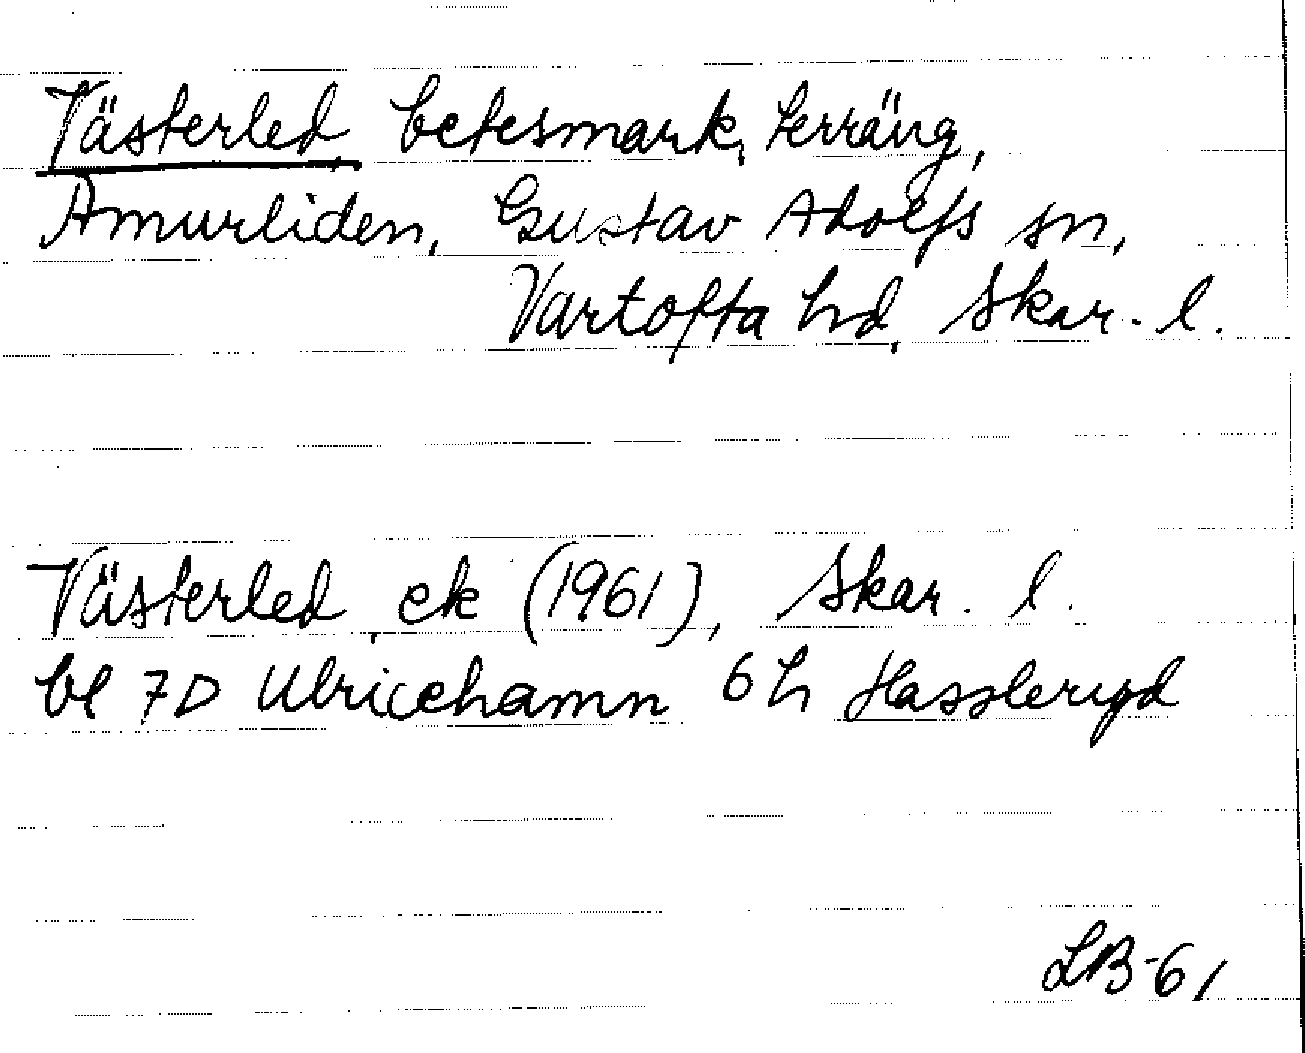 Västerled betesmark, terräng,
Amurliden, Gustav Adolfs sn,
Vartofta hd, Skar. l.
Västerled, ek (1961), Skar. l.
bl 7D Ulricehamn 6h Hassleryd
LB-61